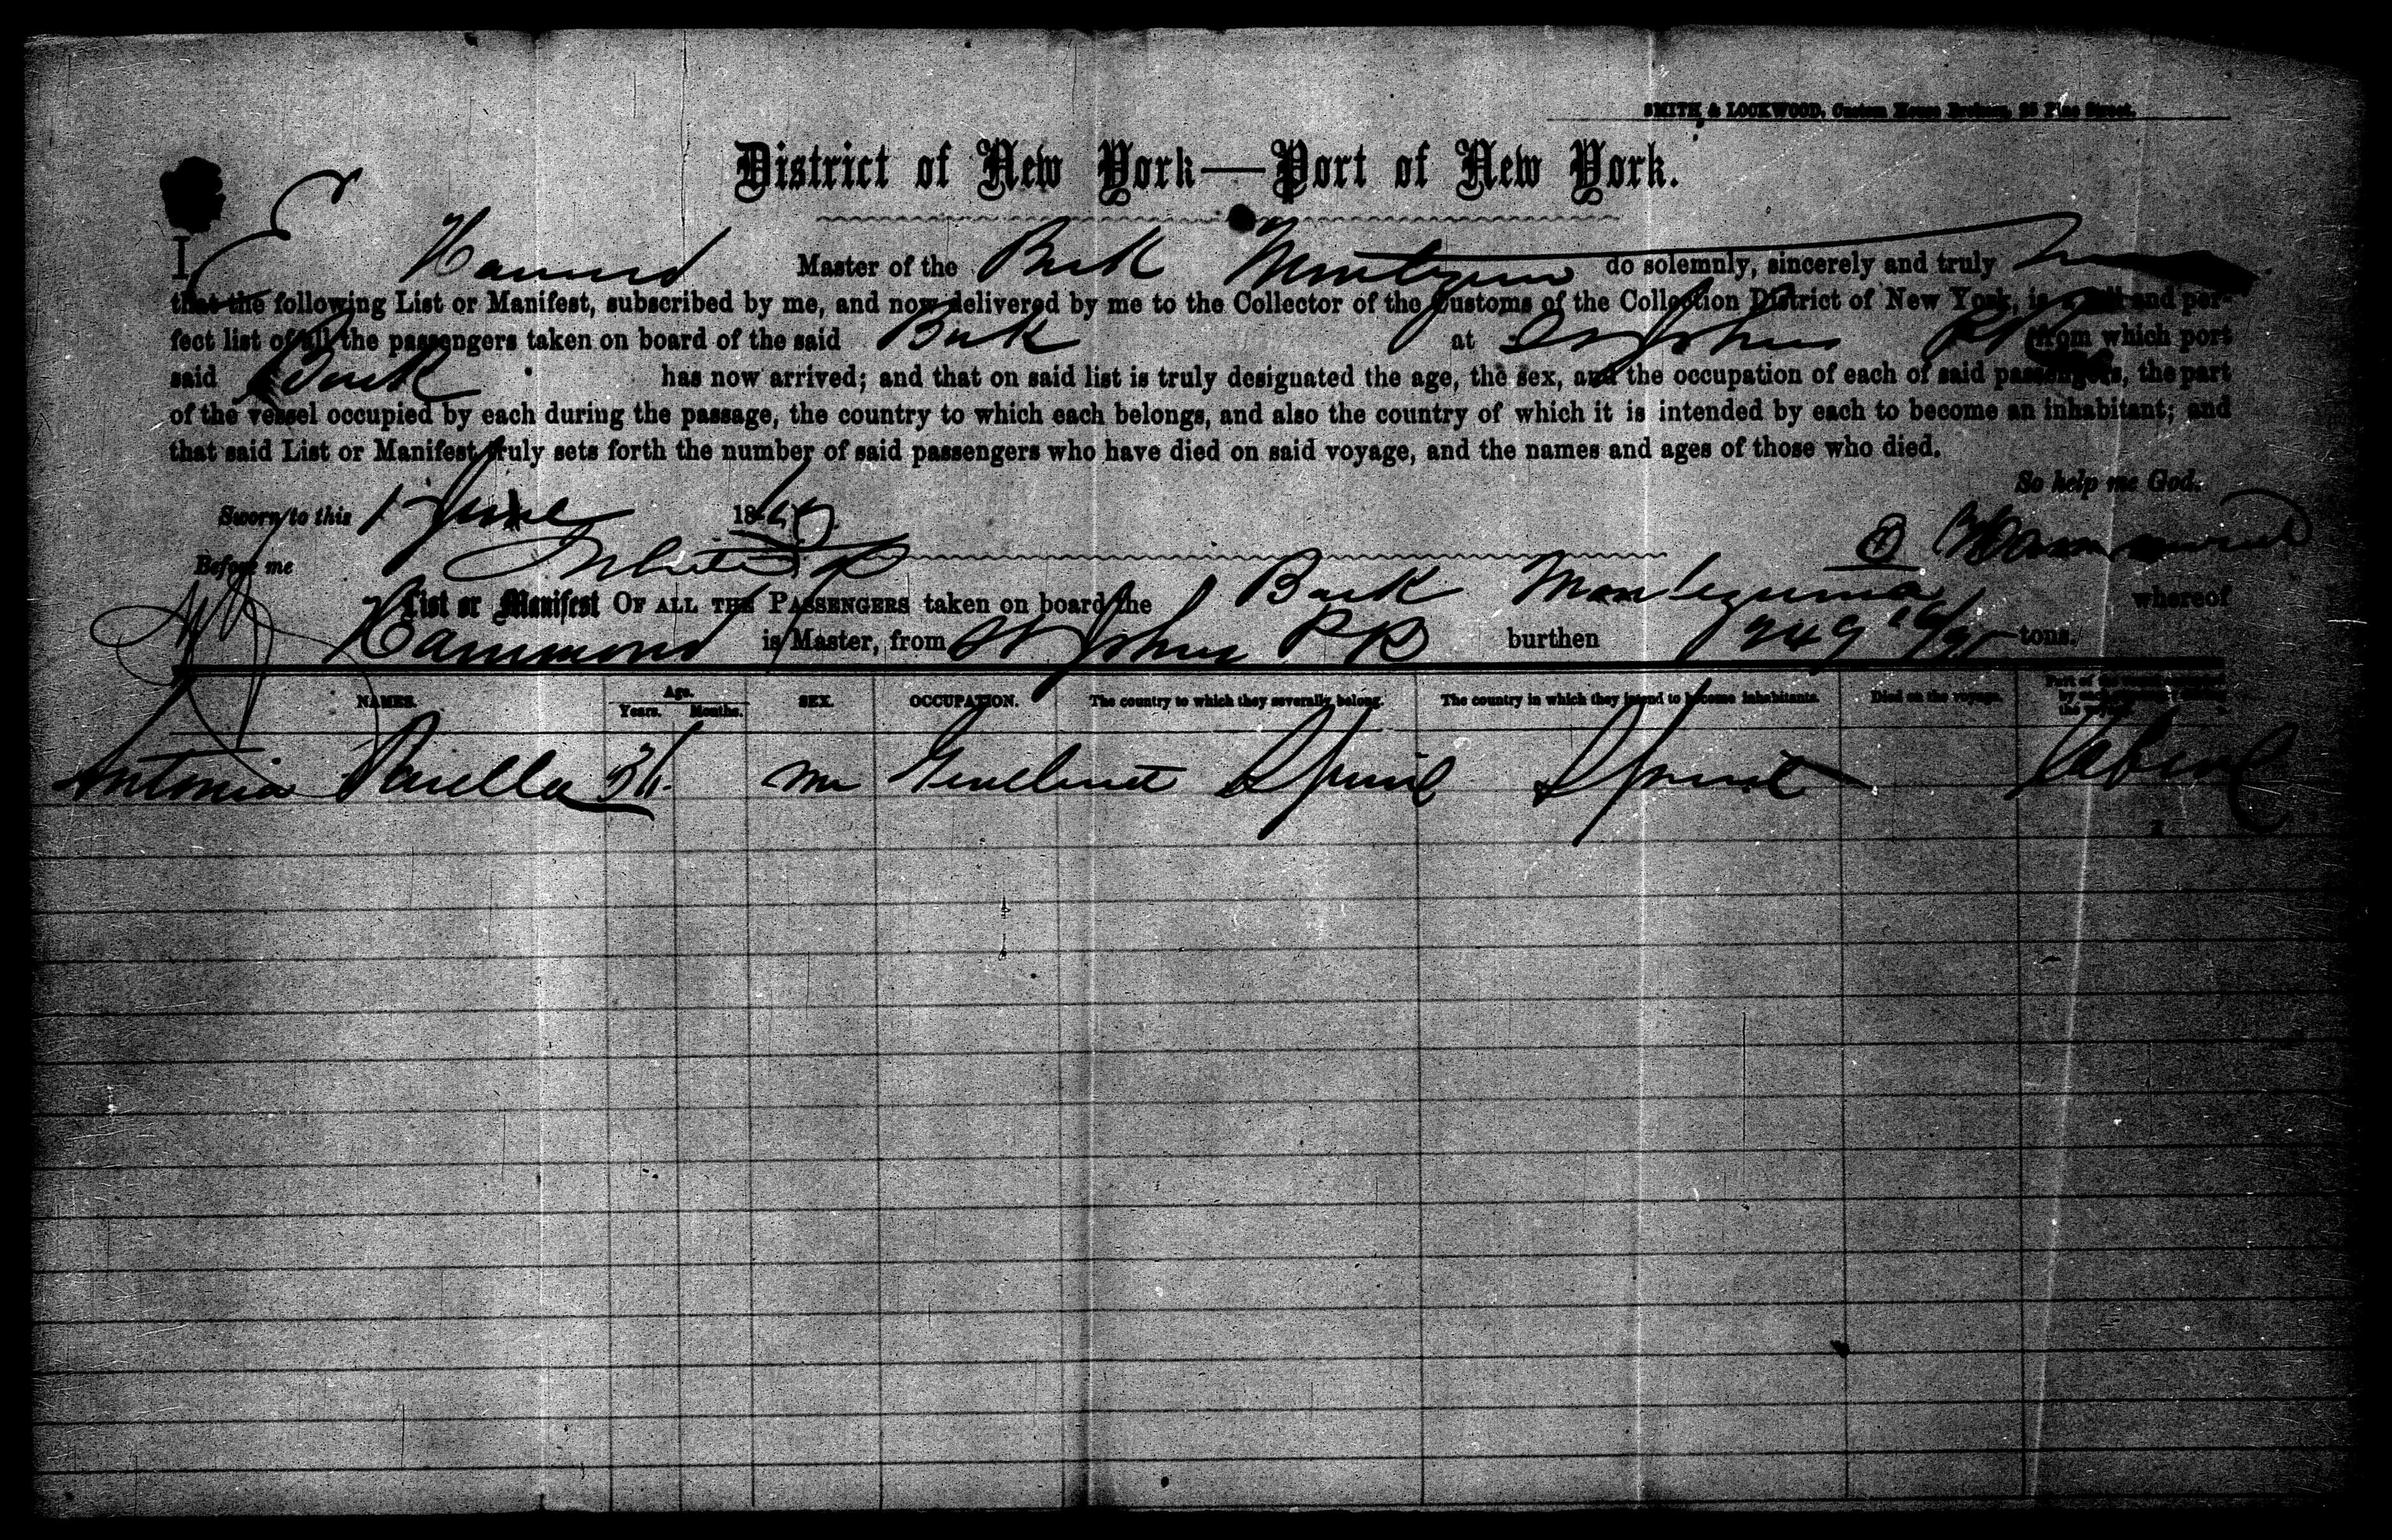 SMITH & LOCKWOOD, Custom House Brokers, 25 Pine Street.
District of New York—Port of New York.
I, E Hammond Master of the Bark Montezuma do solemnly, sincerely and truly
that the following List or Manifest, subscribed by me, and now delivered by me to the Collector of the Customs of the Collection District of New York, is a full and per-
fect list of all the passengers taken on board of the said Bark at St Johns PR from which port
said Bark has now arrived; and that on said list is truly designated the age, the sex, and the occupation of each of said passengers, the part
of the vessel occupied by each during the passage, the country to which each belongs, and also the country of which it is intended by each to become an inhabitant; and
that said List or Manifest truly sets forth the number of said passengers who have died on said voyage, and the names and ages of those who died.
So help me God.
Sworn to this 1 June 186
Hammond
Before me
List or Manifest OF ALL THE PASSENGERS taken on board the Bark Montezuma whereof
Hammond is Master, from St Johns PR burthen 249 tons.
NAMES. Age. Years. Months. SEX. OCCUPATION. The country to which they severally belong. The country in which they intend to become inhabitants. Died on the voyage. Part of the vessel occupied by each
Antonia 36 m Spain Spain Cabin